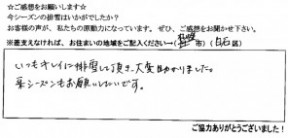 ☆ご感想をお願いします☆
今シーズンの排雪はいかがでしたか？
お客様の声が、私たちの原動力になっています。ぜひ、ご感想をお聞かせ下さい。
※差支えなければ、お住まいの地域をご記入ください（札幌市）（白石区）
いつもキレイに排雪して頂き、大変助かりました。
来シーズンもお願いしたいです。
ご協力ありがとうございました！